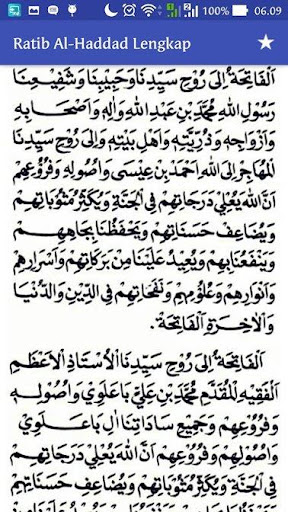 100% 06.09
Ratib Al-Haddad Lengkap
اَلْفَاتِحَةُ اِلَى رُوْحِ سَيِّدِنَا وَحَبِيْبِنَا وَشَفِيْعِنَا
رَسُوْلِ اللهِ مُحَمَّدِ بْنِ عَبْدِ اللهِ وَاٰلِهِ وَاَصْحَابِهِ
وَاَزْوَاجِهِ وَذُرِّيَّتِهِ وَاَهْلِ بَيْتِهِ وَاِلَى رُوْحِ سَيِّدِنَا
الْمُهَاجِرِ اِلَى اللهِ اَحْمَدَ بْنِ عِيْسَى وَاُصُوْلِهِ وَفُرُوْعِهِمْ
اَنَّ اللهَ يُعْلِيْ دَرَجَاتِهِمْ فِى الْجَنَّةِ وَيُكَثِّرُ مَثُوْبَاتِهِمْ
وَيُضَاعِفُ حَسَنَاتِهِمْ وَيَحْفَظُنَا بِجَاهِهِمْ
وَيَنْفَعُنَا بِهِمْ وَيُعِيْدُ عَلَيْنَا مِنْ بَرَكَاتِهِمْ وَاَسْرَارِهِمْ
وَاَنْوَارِهِمْ وَعُلُوْمِهِمْ وَنَفَحَاتِهِمْ فِى الدِّيْنِ وَالدُّنْيَا
وَالْاٰخِرَةِ اَلْفَاتِحَةُ.
اَلْفَاتِحَةُ اِلَى رُوْحِ سَيِّدِنَا الْاُسْتَاذِ الْاَعْظَمِ
اَلْفَقِيْهِ الْمُقَدَّمِ مُحَمَّدِ بْنِ عَلِيِّ بَاعَلَوِيْ وَاُصُوْلِهِ
وَفُرُوْعِهِمْ وَجَمِيْعِ سَادَاتِنَا اٰلِ بَاعَلَوِيْ
وَاُصُوْلِهِمْ وَفُرُوْعِهِمْ اَنَّ اللهَ يُعْلِيْ دَرَجَاتِهِمْ
فِى الْجَنَّةِ وَيُكَثِّرُ مَثُوْبَاتِهِمْ وَيُضَاعِفُ حَسَنَاتِهِمْ